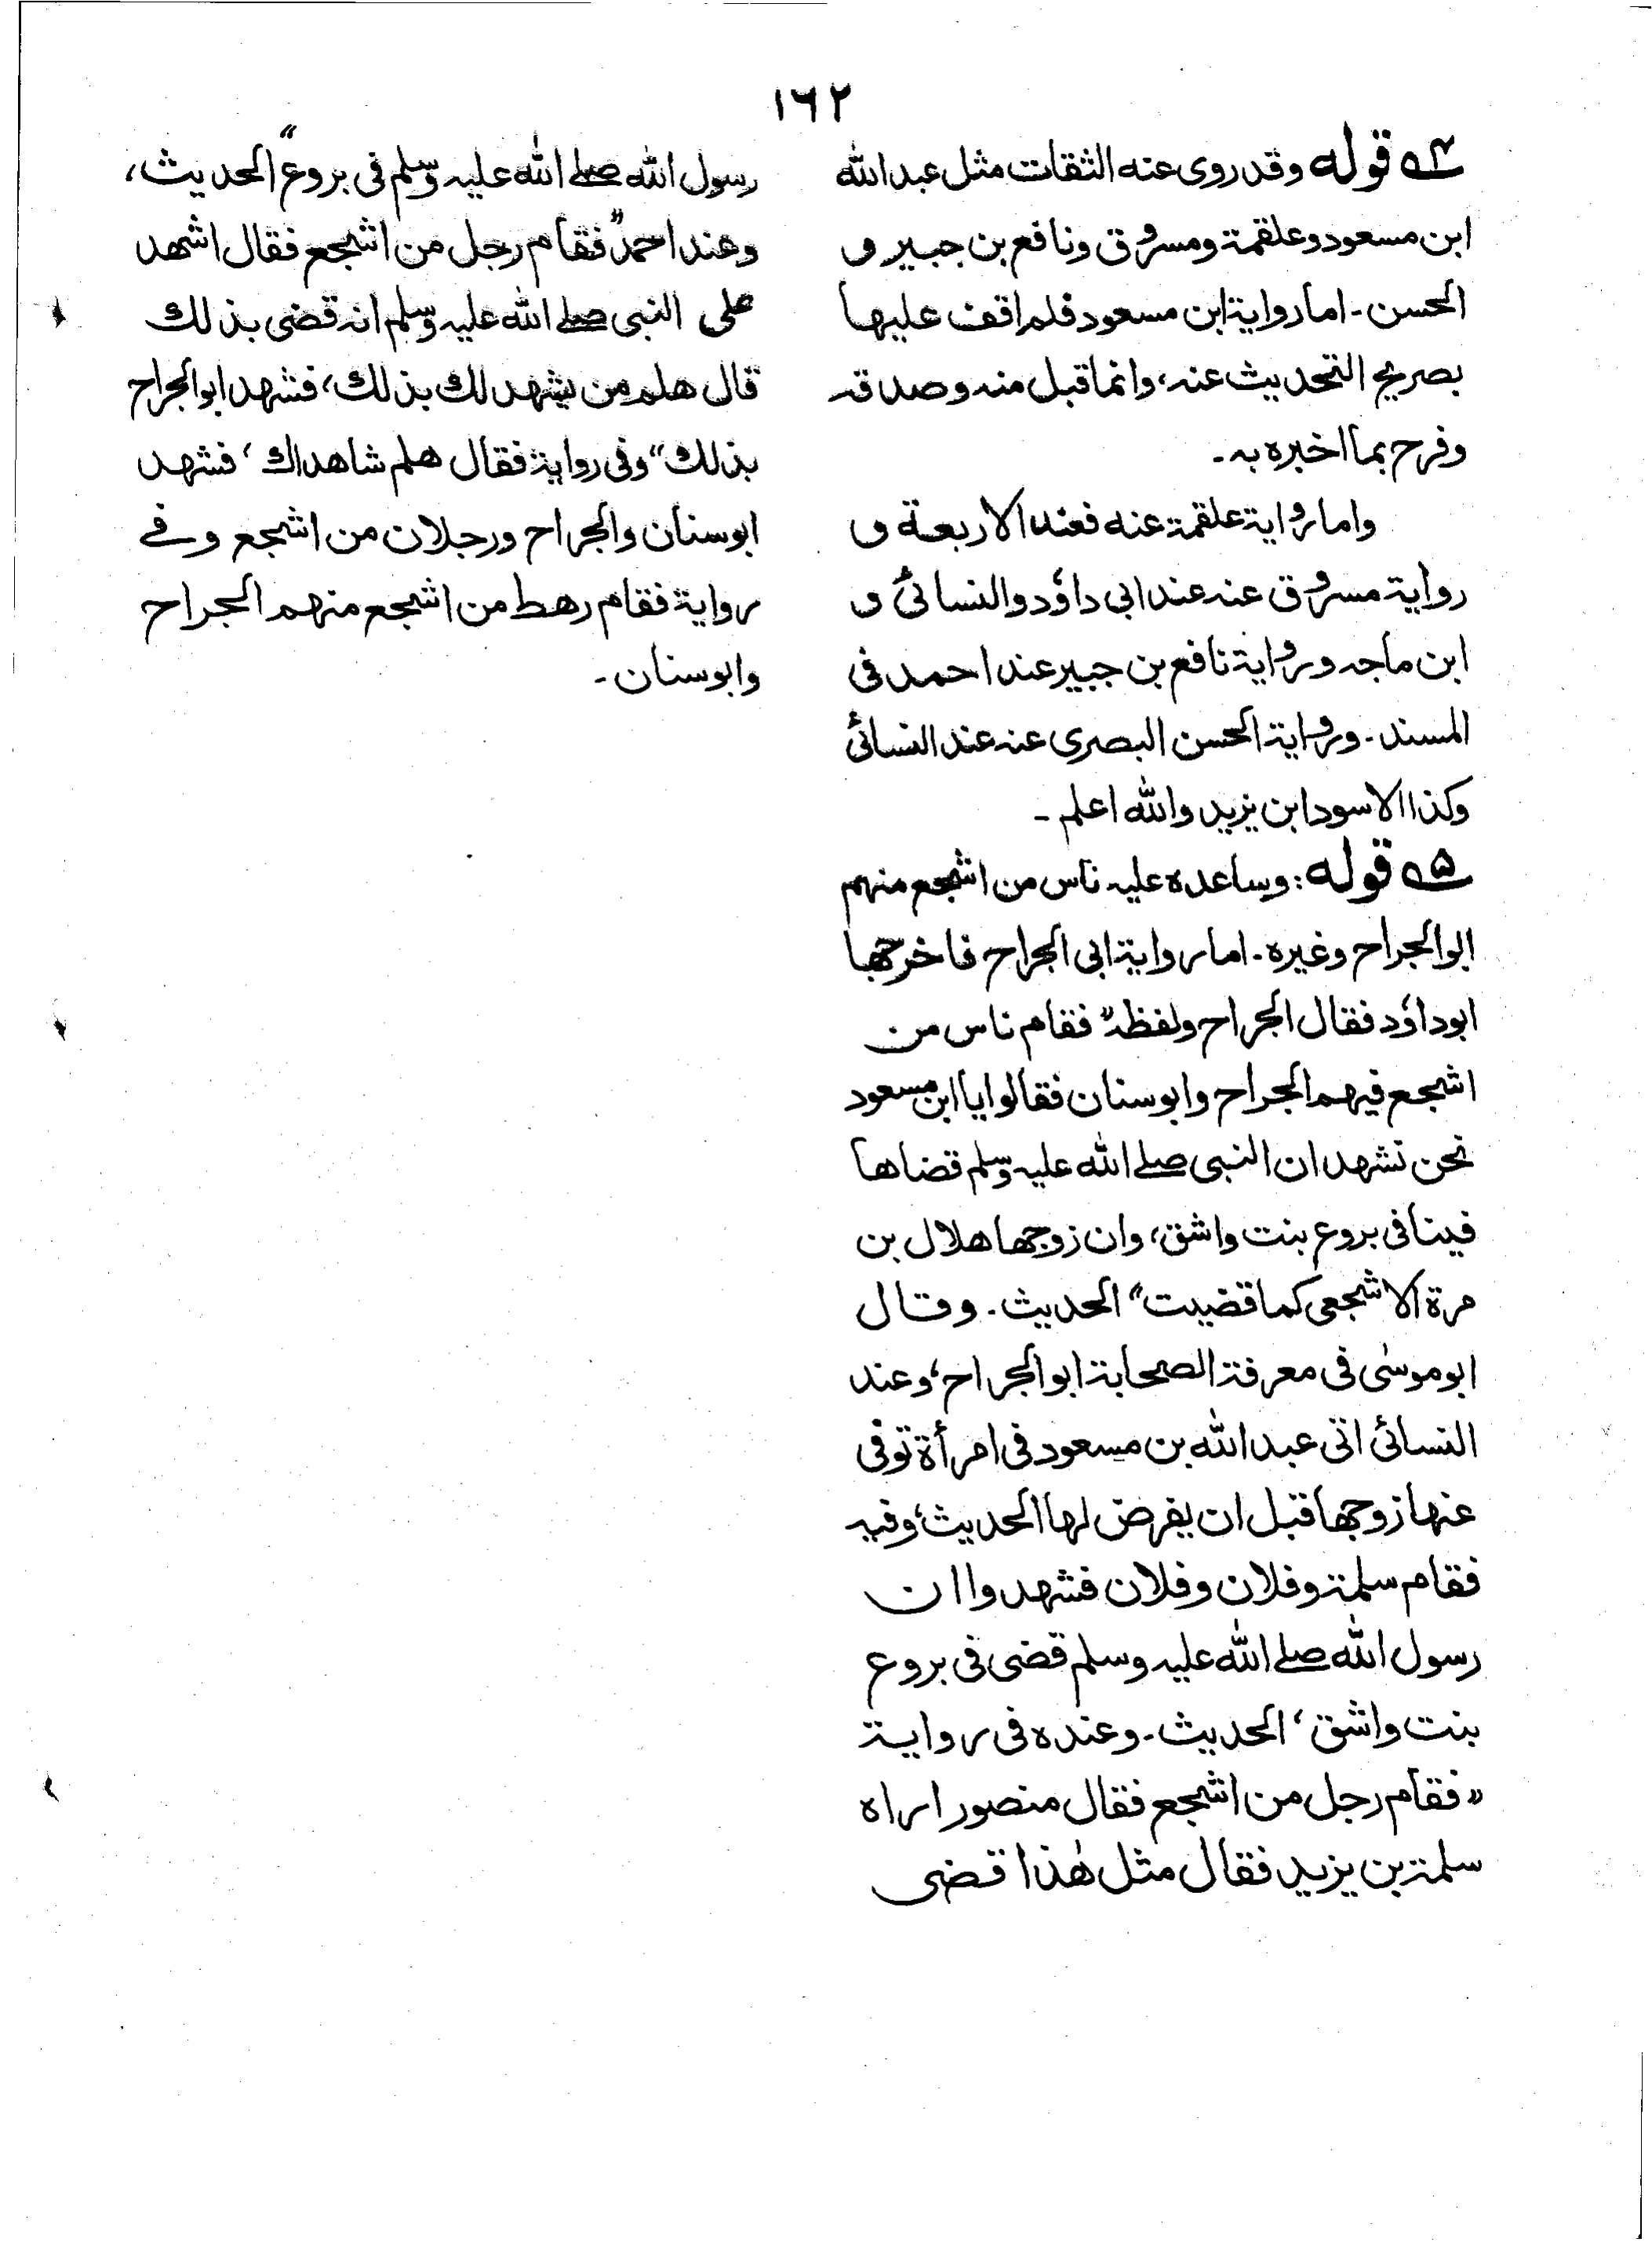 ١٦٢
٤ قوله وقد روى عنه الثقات مثل عبد الله
ابن مسعود وعلقمة ومسروق ونافع بن جبير و
الحسن - اما رواية ابن مسعود فلم اقف عليها
بصريح التحديث عنه، وانما قبل منه وصدقه
وفرح بما اخبره به -
واما رواية علقمة عنه فعند الاربعة و
رواية مسروق عنه عند ابي داؤد والنسائي و
ابن ماجه ورواية نافع بن جبير عند احمد في
المسند - ورواية الحسن البصرى عنه عند النسائي
وكذا الاسود ابن يزيد والله اعلم -
٥ قوله : وساعده عليه ناس من اشجع منهم
ابو الجراح وغيره - اما رواية ابى الجراح فاخرجها
ابوداؤد فقال الجراح ولفظه "فقام ناس من
اشجع فيهم الجراح وابوسنان فقالوا يا ابن مسعود
نحن نشهد ان النبى صلے الله عليه وسلم قضاها
فينا فى بروع بنت واشق، وان زوجها هلال بن
مرة الاشجعى كما قضيت" الحديث - وقال
ابوموسٰى فى معرفة الصحابة ابو الجراح، وعند
النسائى اتى عبد الله بن مسعود فى امرأة توفى
عنها زوجها قبل ان يفرض لها الحديث، وفيه
فقام سلمة وفلان وفلان فشهدوا ان
رسول الله صلے الله عليه وسلم قضى فى بروع
بنت واشق، الحديث - وعنده فى رواية
"فقام رجل من اشجع فقال منصور اراه
سلمة بن يزيد فقال مثل هٰذا قضى
رسول الله صلے الله عليه وسلم فى بروع" الحديث،
وعند احمد "فقام رجل من اشجع فقال اشهد
على النبى صلے الله عليه وسلم انه قضى بذلك
قال هلم من يشهد لك بذلك، فشهد ابو الجراح
بذلك" وفى رواية فقال هلم شاهداك، فشهد
ابوسنان والجراح ورجلان من اشجع وفے
رواية فقام رهط من اشجع منهم الجراح
وابوسنان -